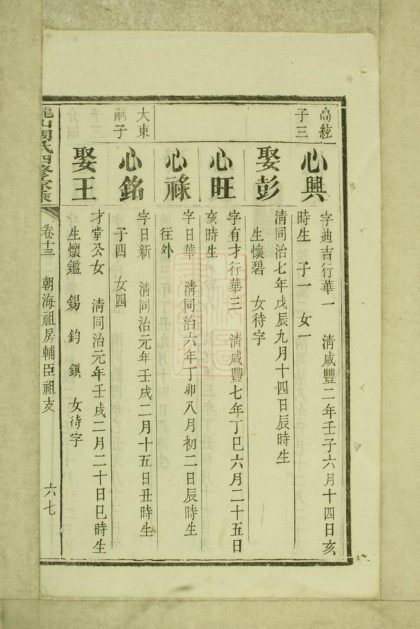 高纮
子三
心興
字迪吉行華一 清咸豐二年壬子六月十四日亥
時生 子一 女一
娶彭
清同治七年戊辰九月十四日辰時生
生懷碧 女待字
心旺
字有才行華三 清咸豐七年丁巳六月二十五日
亥時生
心祿
字日華 清同治六年丁卯八月初二日辰時生
往外
大東
嗣子
心銘
字日新 清同治元年壬戌二月十五日丑時生
子四 女四
娶王
才掌公女 清同治元年壬戌二月二十日巳時生
生懷鑑 錫 鈞 鎮 女待字
卷十三 朝海祖房輔臣祖支 六七